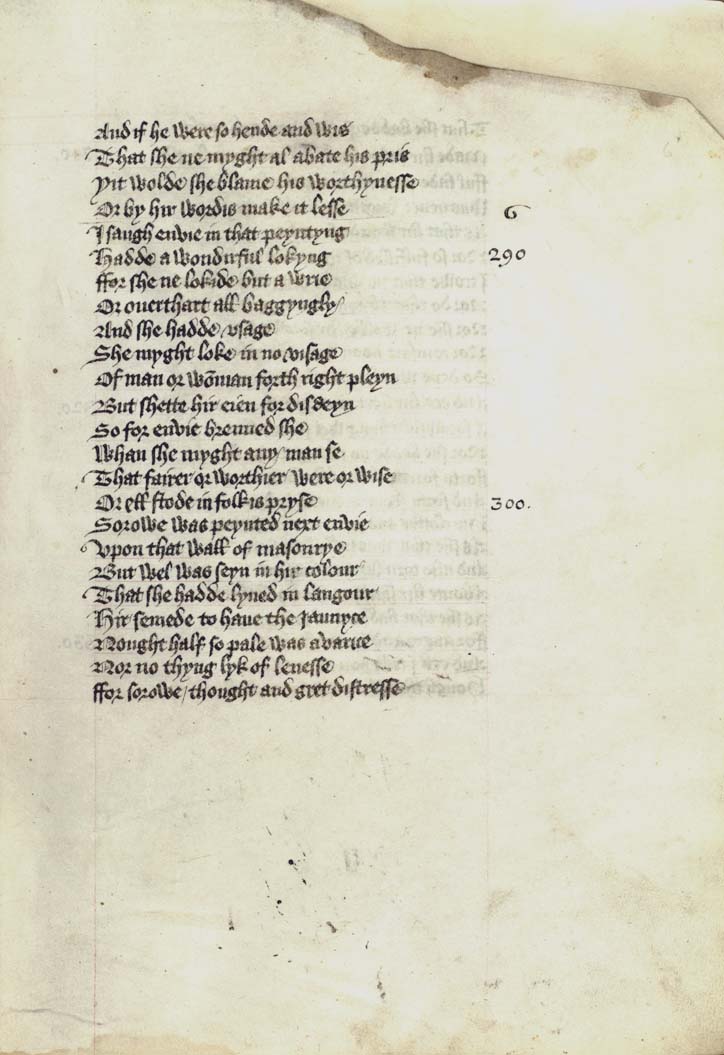 And if he were so hende and wis
That she ne myght al abate his pris
Yit wolde she blame his worthynesse
Or by hir wordis make it lesse
6
I saugh envie in that peyntyng
Hadde a wondirful lokyng
290
ffor she ne lokide but a wrie
Or ouerthart all baggyngly
And she hadde vsage
She myght loke in no visage
Of man or wōman forth right pleyn
But shette hir eien for disdeyn
So for envie brenned she
Whan she myght any man se
That fairer or worthier were or wise
Or ell stode in folkis pryse
300.
Sorowe was peynted next envie
Vpon that wall of masonrye
But wel was seyn in hir colour
That she hadde lyued in langour
Hir semede to haue the Iaunyce
Nought half so pale was avarice
Nor no thyng lyk of lenesse
ffor sorowe / thought and gret distresse